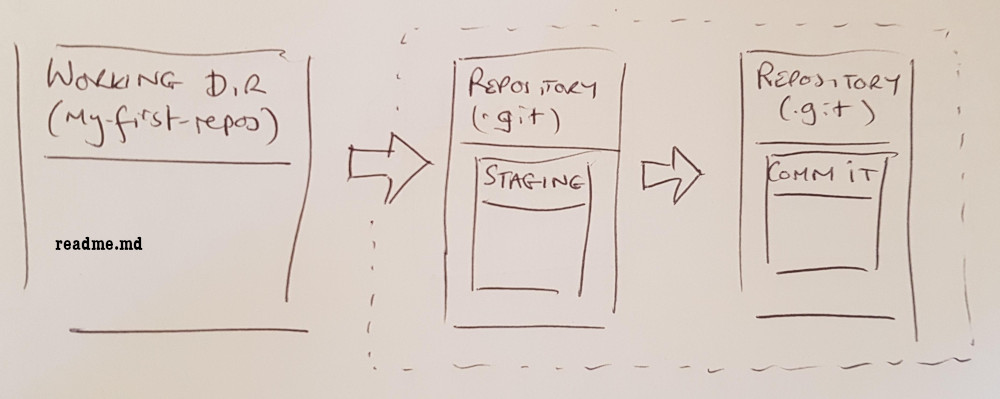 WORKING DIR
(My-first-repos)
readme.md
REPOSITORY
(.git)
STAGING
REPOSITORY
(.git)
COMMIT